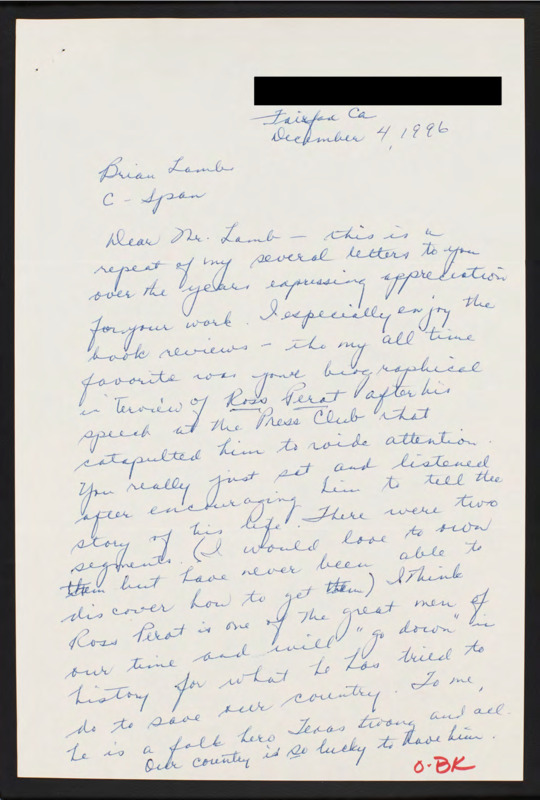 Fairfax Ca
December 4, 1996
Brian Lamb
C-Span
Dear Mr. Lamb — this is a
repeat of my several letters to you
over the years expressing appreciation
for your work. I especially enjoy the
book reviews - tho my all time
favorite was your biographical
interview of Ross Perot after his
speech at the Press Club that
catapulted him to wide attention.
You really just sat and listened
after encouraging him to tell the
story of his life. There were two
segments. (I would love to own
them but have never been able to
discover how to get them) I think
Ross Perot is one of the great men of
our time and will "go down" in
history for what he has tried to
do to save our country. To me,
he is a folk hero, Texas twang and all.
Our country is so lucky to have him.
O-BK